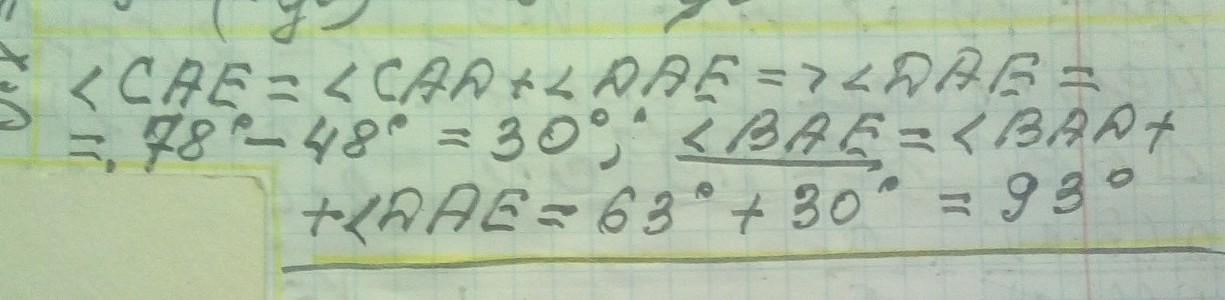 <CAE = <CAD + <DAE => <DAE =
= 78° - 48° = 30°; <BAE = <BAD +
+ <DAE = 63° + 30° = 93°